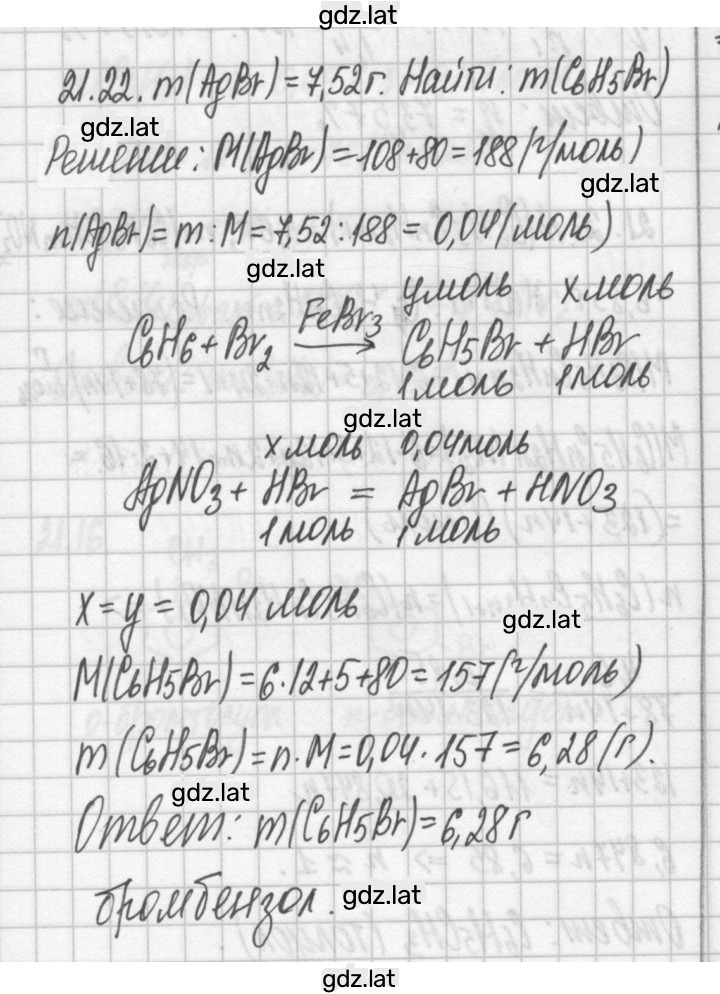 gdz.lat
21.22. m(AgBr)=7,52г. Найти: m(C6H5Br)
gdz.lat
Решение: M(AgBr)=108+80=188(г/моль)
gdz.lat
n(AgBr)=m:M=7,52:188=0,04(моль)
gdz.lat
yмоль xмоль
C6H6+Br2 FeBr3→ C6H5Br+HBr
1моль 1моль
gdz.lat
xмоль 0,04моль
AgNO3+HBr=AgBr+HNO3
1моль 1моль
x=y=0,04 моль
gdz.lat
M(C6H5Br)=6·12+5+80=157(г/моль)
m(C6H5Br)=n·M=0,04·157=6,28(г).
gdz.lat
Ответ: m(C6H5Br)=6,28г
бромбензол.
gdz.lat
gdz.lat